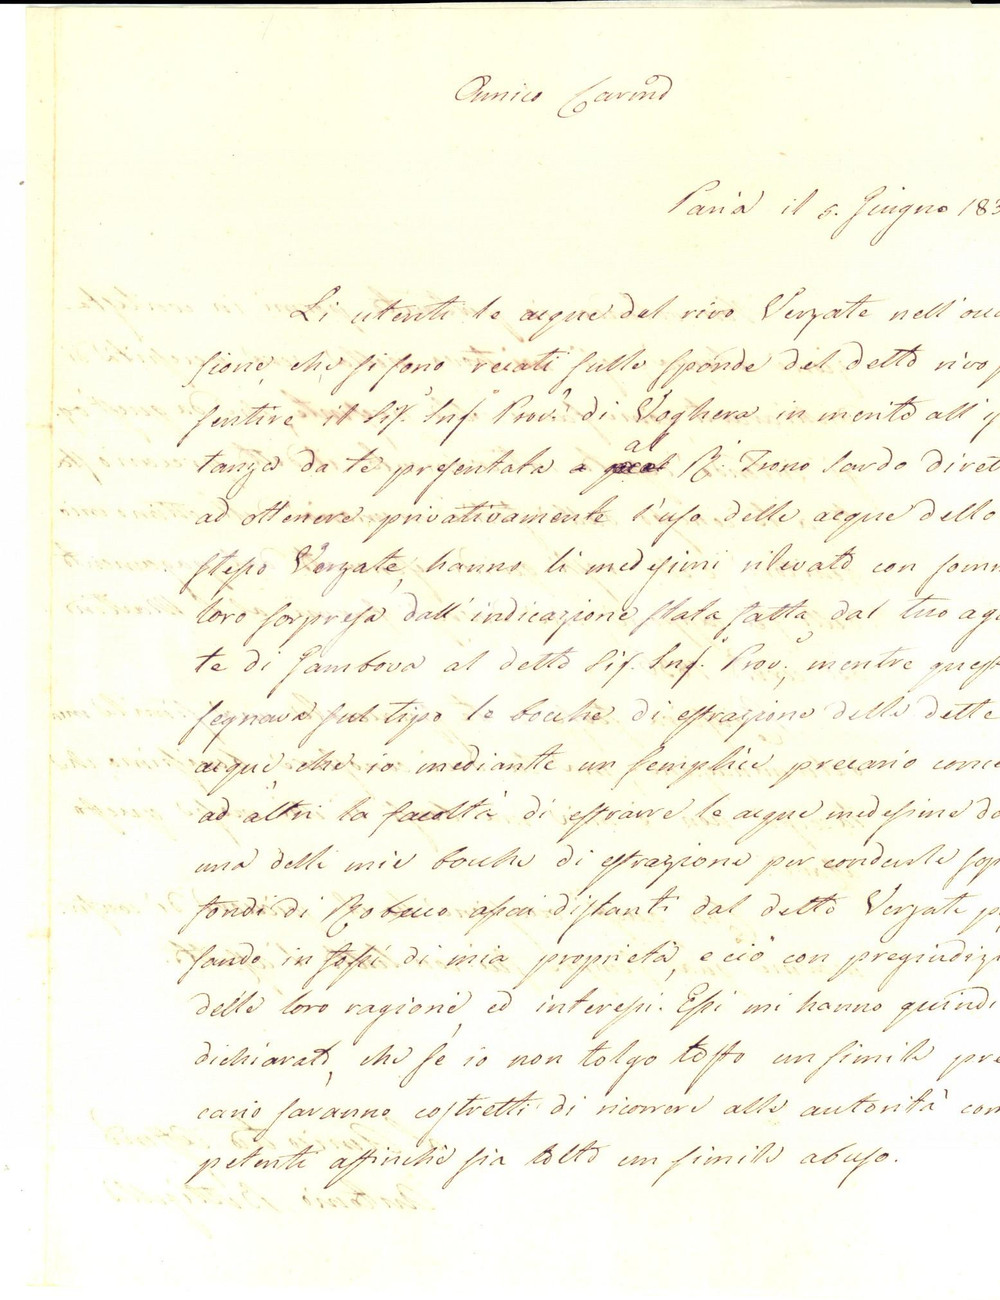 Amico Carmo
Pavia il 5. Giugno 183
Li utenti le acque del rivo Verzate nell'occa
sione, che si sono recati sulle sponde del detto rivo p
sentire il Sigr. Ingr. Provle. di Voghera in merito all'is
tanza da te presentata al R. Trono Sardo diret
ad ottenere privativamente l'uso delle acque dello
stesso Verzate, hanno li medesimi rilevato con somm
loro sorpresa dall'indicazione stata fatta dal tuo agen
te di Gambova al detto Sigr. Ingr. Provle., mentre quest
segnava sul tipo le bocche di estrazione delle dette
acque, che io mediante un semplice precario conce
ad altri la facoltà di estrarre le acque medesime da
una delle mie bocche di estrazione per condurle sop
fondi di Robecco assai distanti dal detto Verzate p
sando in fossi di mia proprietà, e ciò con pregiudizi
delle loro ragioni, ed interessi. Essi mi hanno quindi
dichiarato, che se io non tolgo tosto un simile pre
cario saranno costretti di ricorrere alle autorità com
petenti affinchè sia tolto un simile abuso.